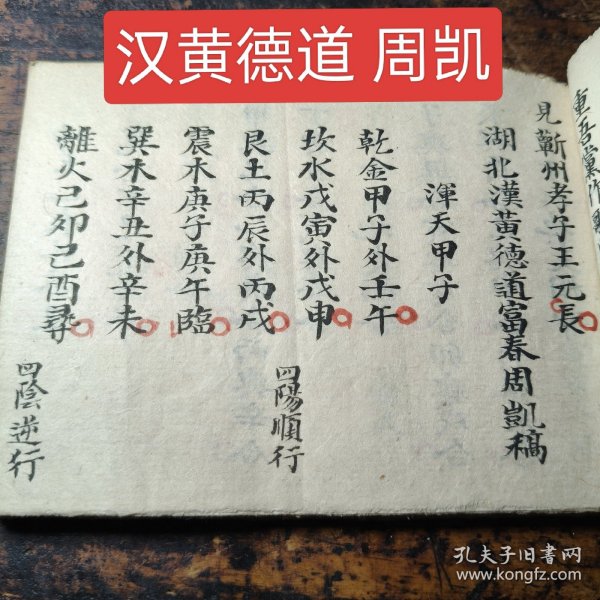 汉黄德道 周凯
見蘄州孝子王元長
湖北漢黃德道富春周凱稿
渾天甲子
乾金甲子外壬午
坎水戊寅外戊申
四陽順行
艮土丙辰外丙戌
震木庚子庚午臨
巽木辛丑外辛未
離火己卯己酉尋
四陰逆行
孔夫子旧书网
www.kongfz.com